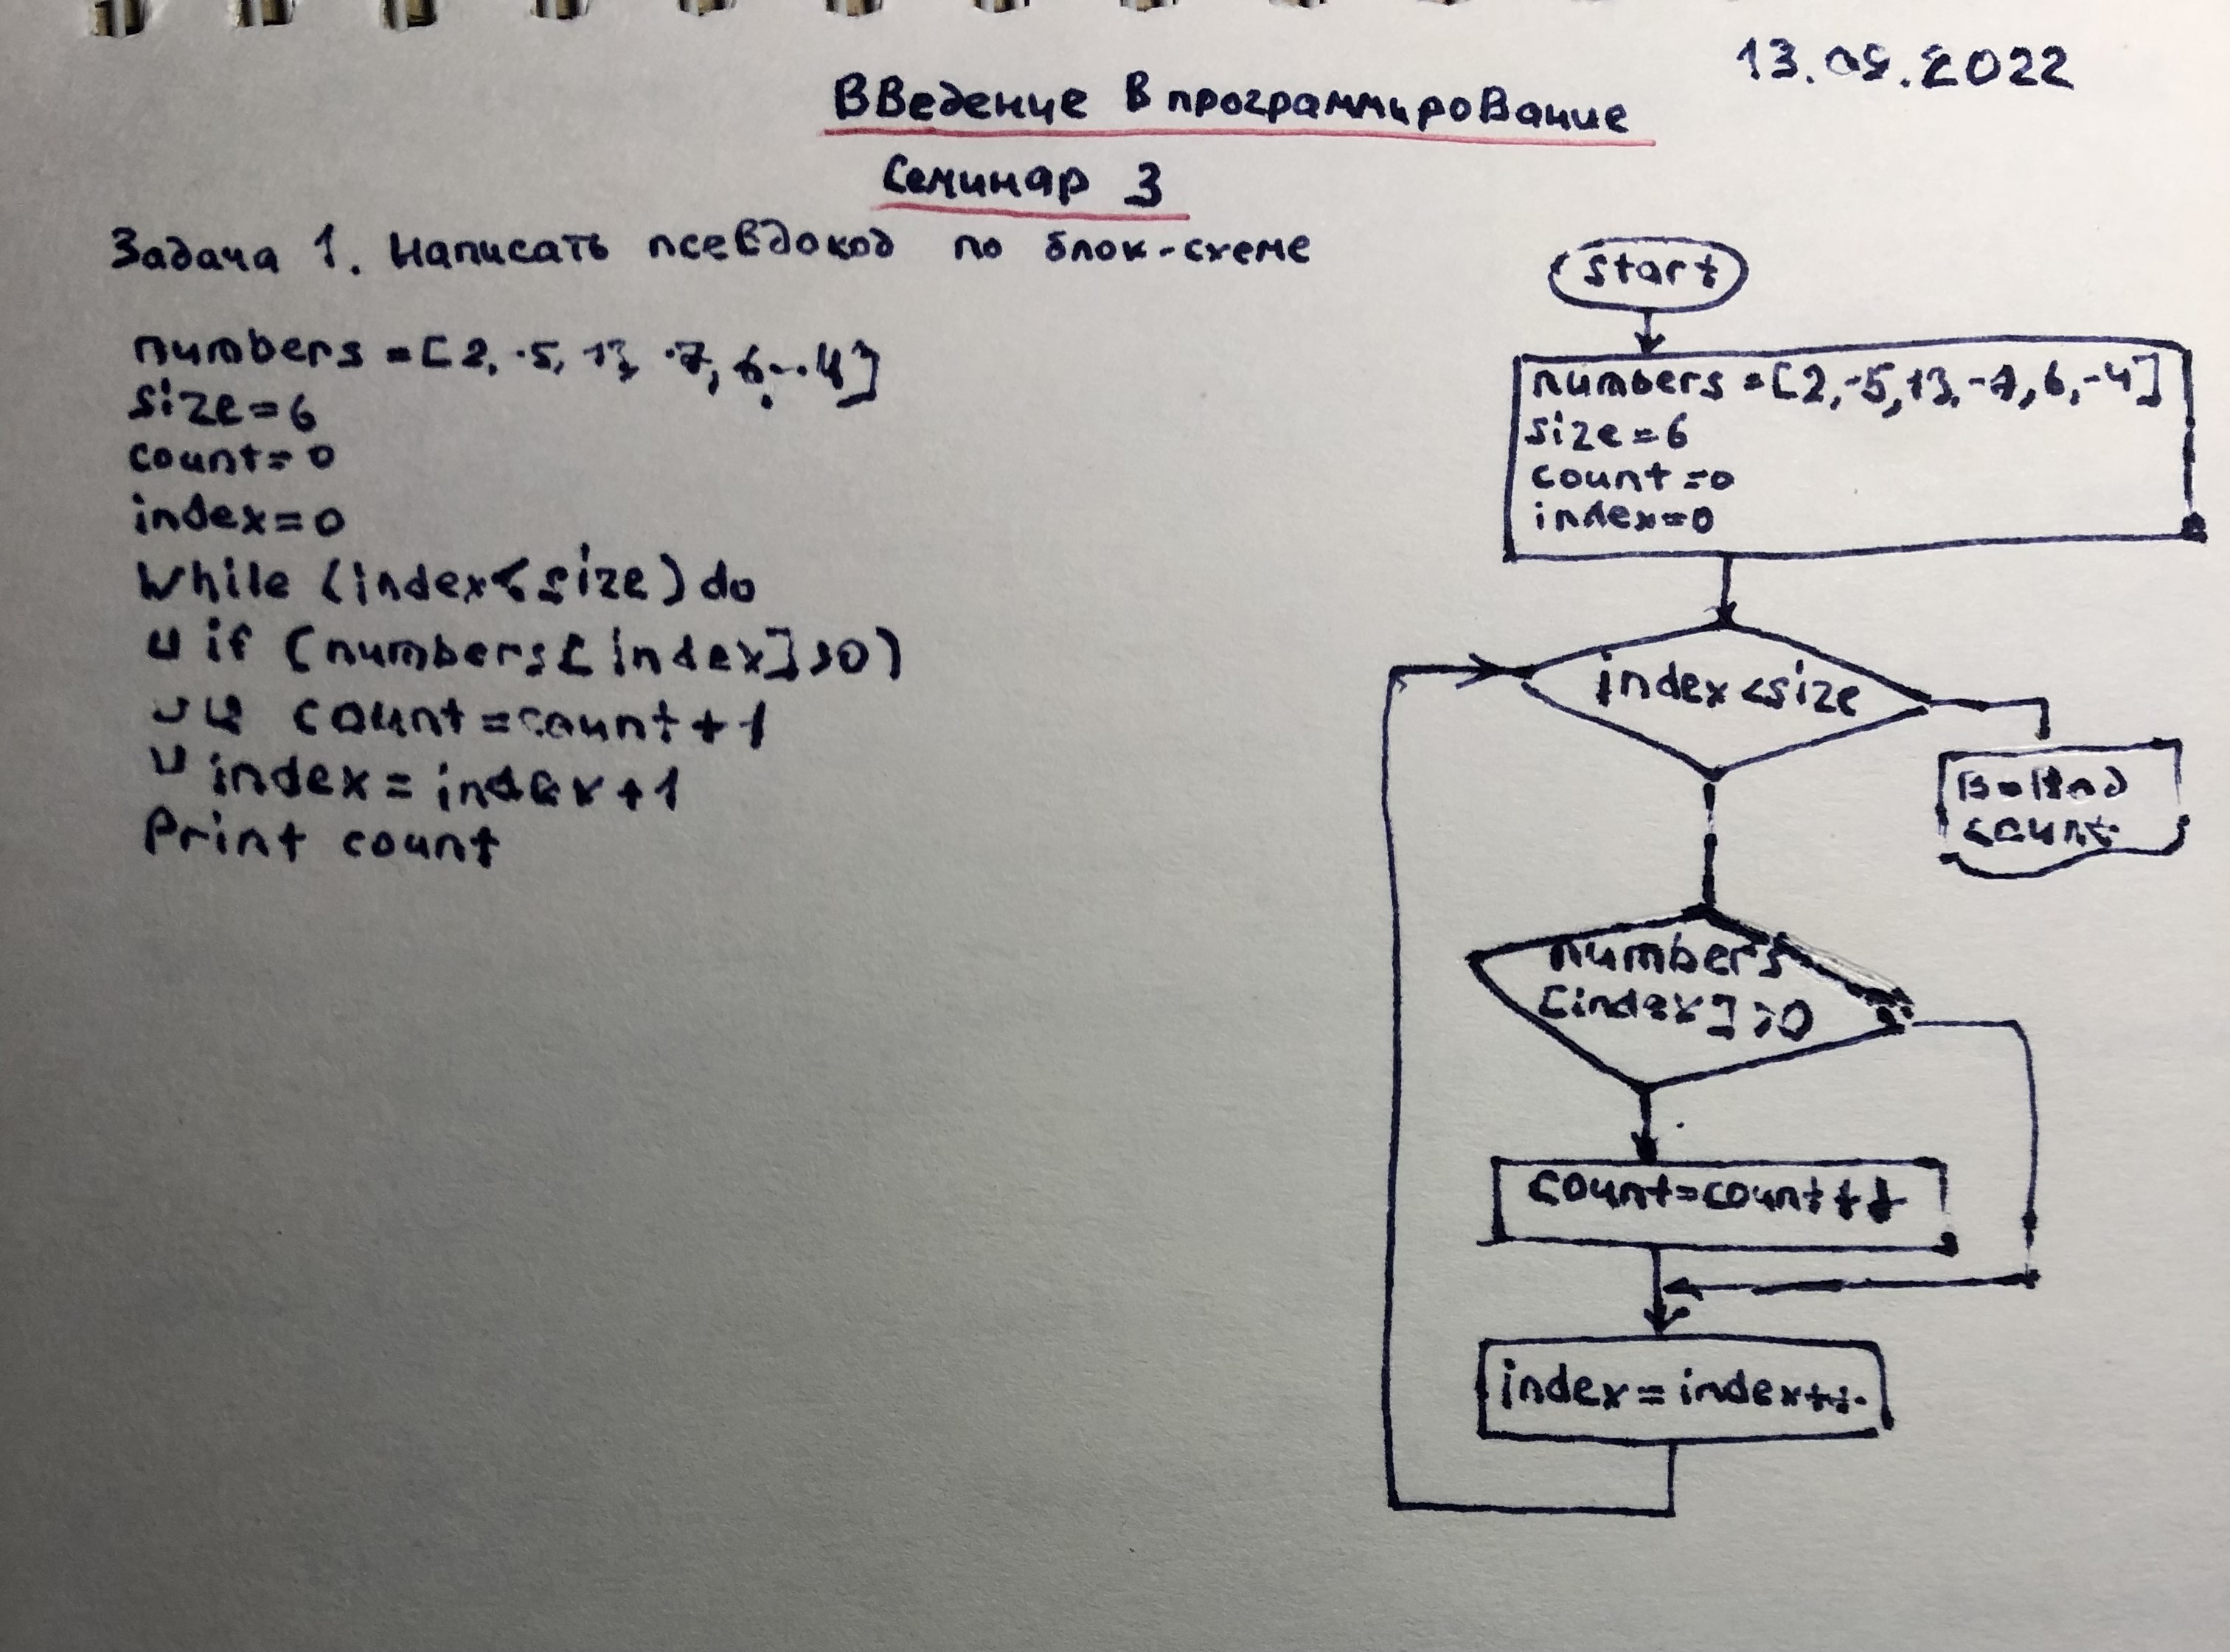 13.09.2022
Введение в программирование
Семинар 3
Задача 1. Написать псевдокод по блок-схеме
numbers = [2, -5, 13, -7, 6, -4]
size=6
count=0
index=0
While (index<size) do
␣ if (numbers[index]>0)
␣␣ count=count+1
␣ index=index+1
Print count
start
numbers=[2,-5,13,-7,6,-4]
size=6
count=0
index=0
index<size
count
numbers
[index]>0
count=count+1
index=index+1